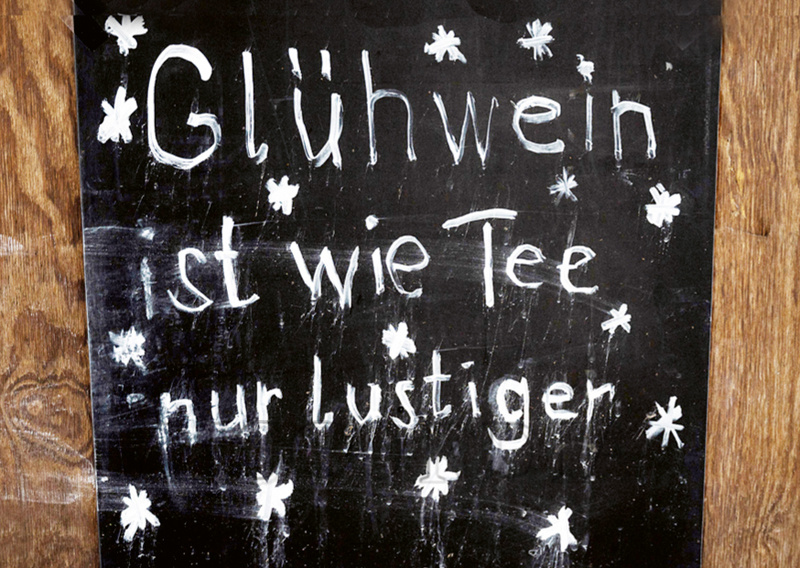 Glühwein
ist wie Tee
nur lustiger